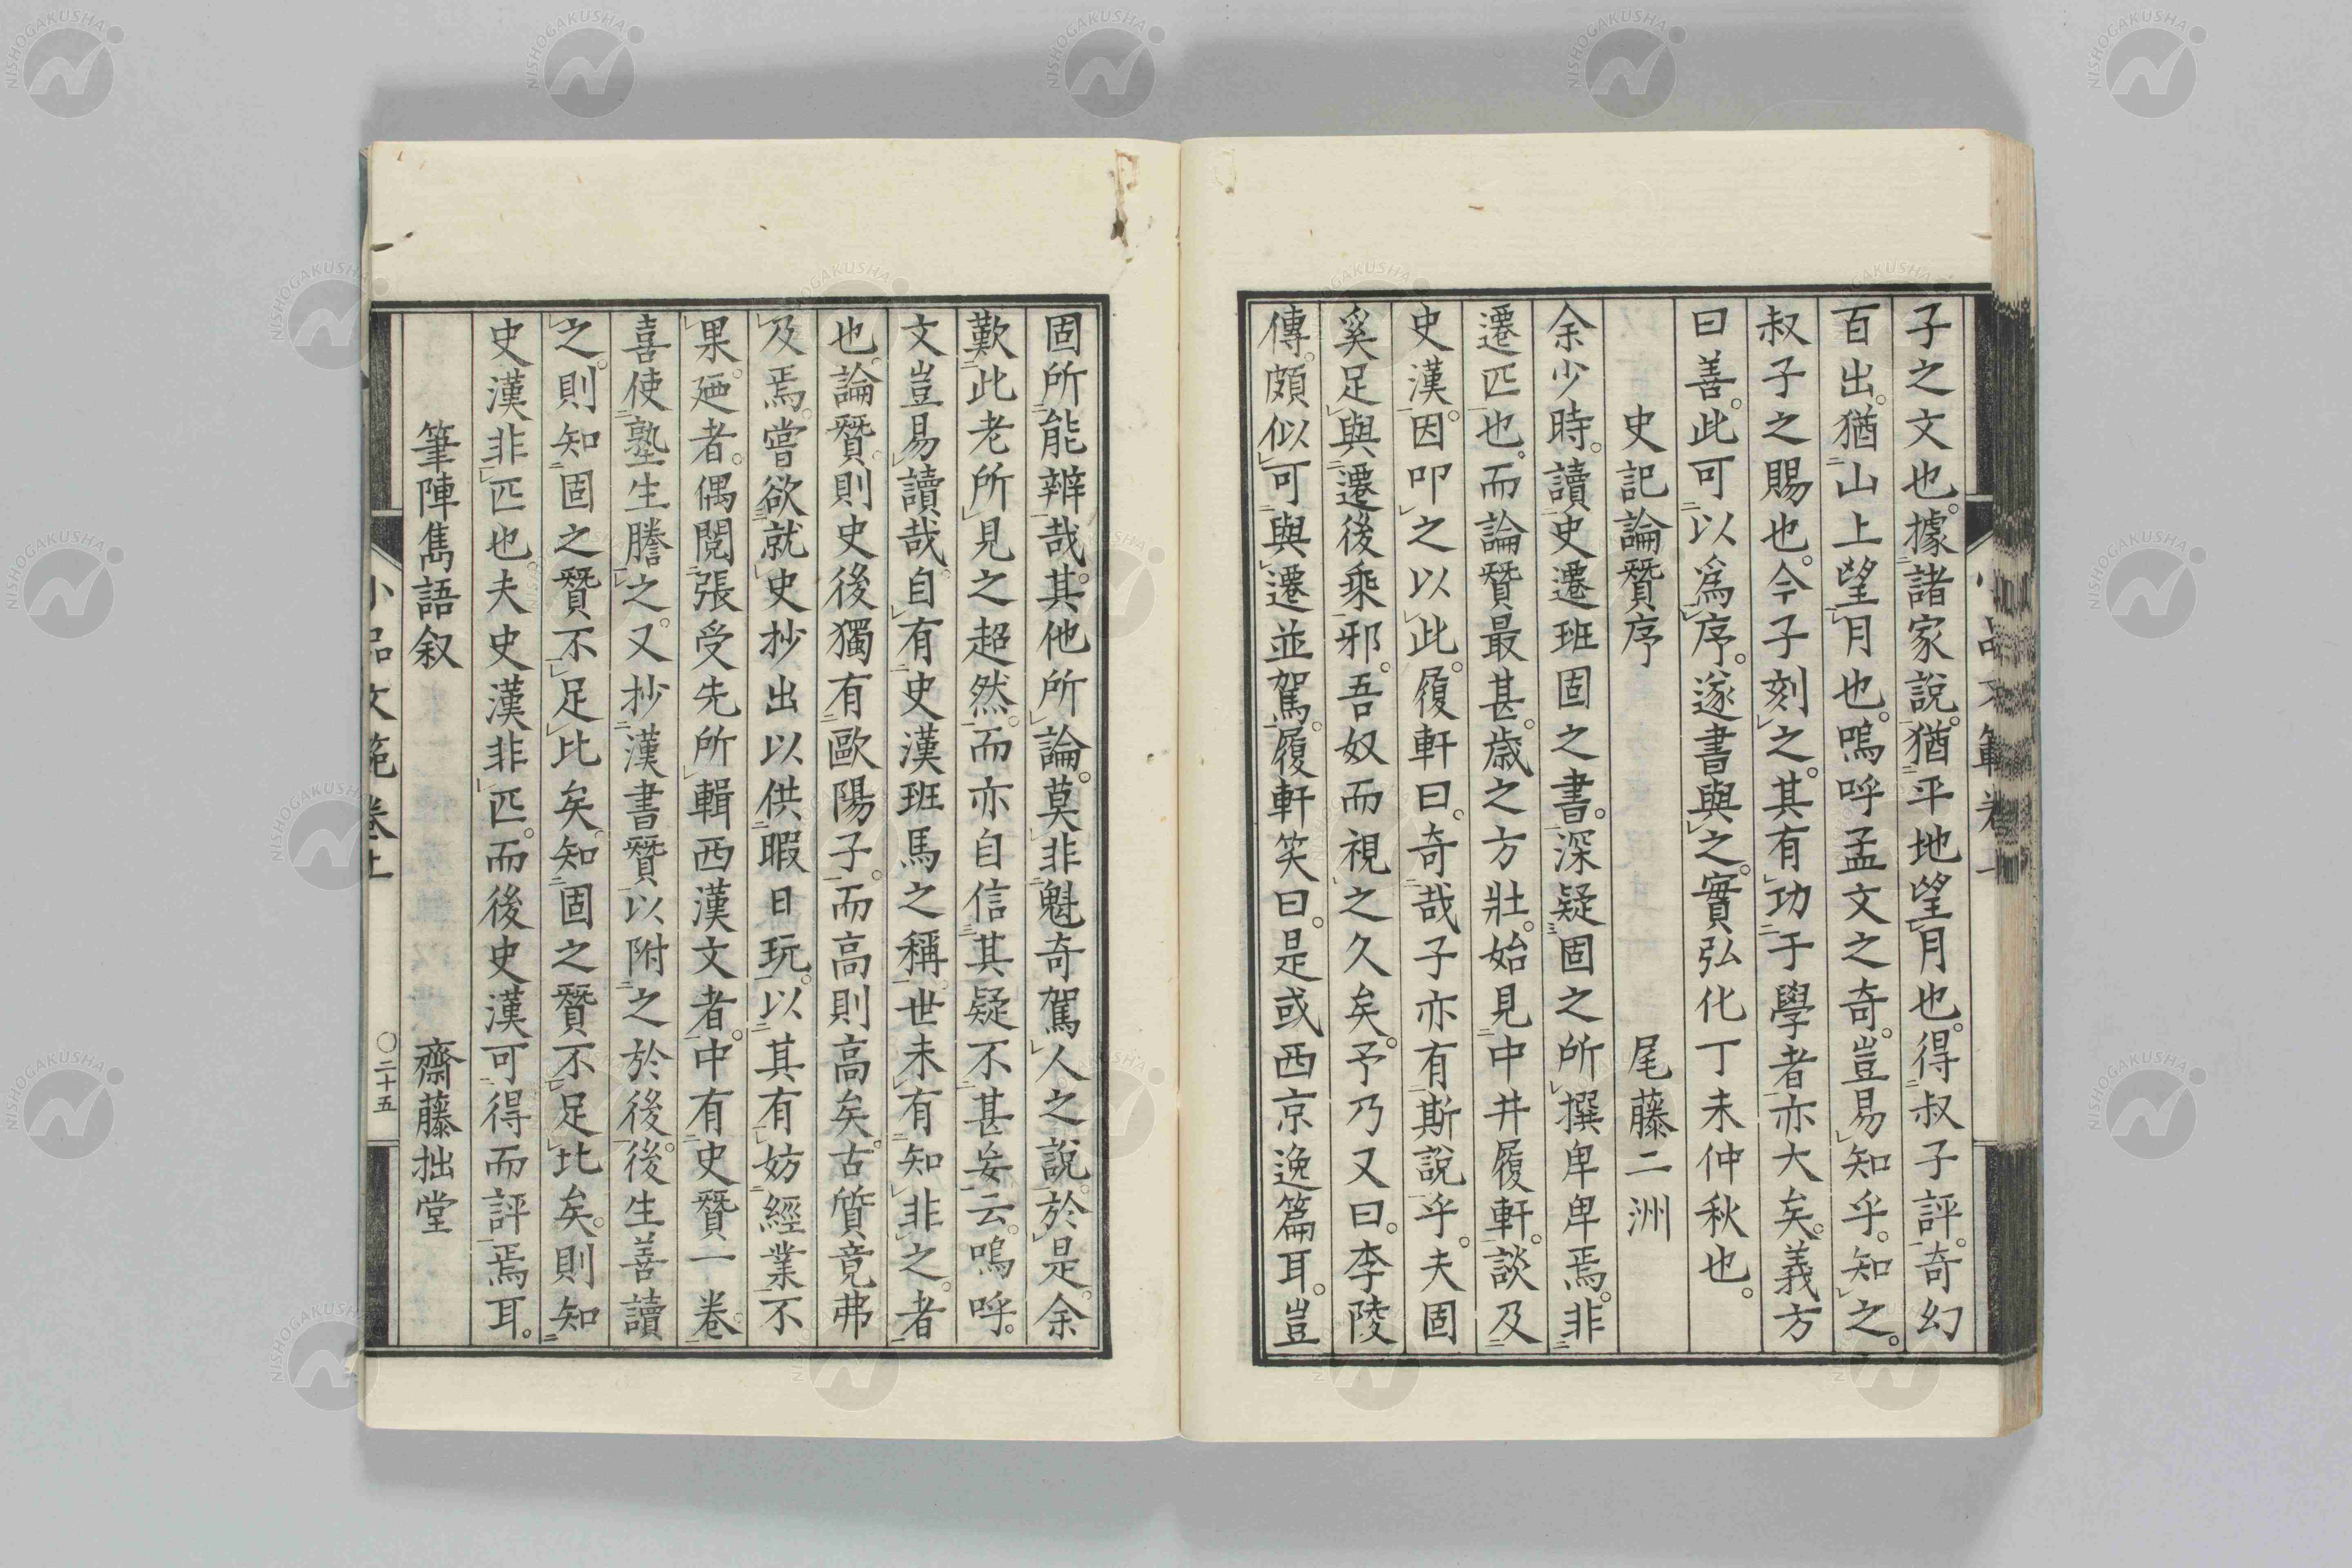 子之文也。據諸家說。猶平地望月也。得叔子評。奇幻
百出。猶山上望月也。嗚呼孟文之奇。豈易知乎。知之。
叔子之賜也。今子刻之。其有功于學者亦大矣。義方
曰善。此可以爲序。遂書與之。實弘化丁未仲秋也。
史記論贊序 尾藤二洲
余少時。讀史遷班固之書。深疑固之所撰卑卑焉。非
遷匹也。而論贊最甚。歲之方壯。始見中井履軒。談及
史漢。因叩之以此。履軒曰。奇哉子亦有斯說乎。夫固
奚足與遷後乘邪。吾奴而視之久矣。予乃又曰。李陵
傳。頗似可與遷並駕。履軒笑曰。是或西京逸篇耳。豈
固所能辨哉。其他所論。莫非魁奇駕人之說。於是。余
歎此老所見之超然。而亦自信其疑不甚妄云。嗚呼。
文豈易讀哉。自有史漢班馬之稱。世未有知非之。者
也。論贊則史後獨有歐陽子。而高則高矣。古質竟弗
及焉。嘗欲就史抄出以供暇日玩。以其有妨經業不
果。廼者。偶閱張受先所輯西漢文者。中有史贊一卷。
喜使塾生謄之。又抄漢書贊以附之於後。後生善讀
之。則知固之贊不足比矣。知固之贊不足比矣。則知
史漢非匹也。夫史漢非匹。而後史漢可得而評焉耳。
筆陣雋語叙 齋藤拙堂
小品文範卷上 〇二十五
NISHOGAKUSHA